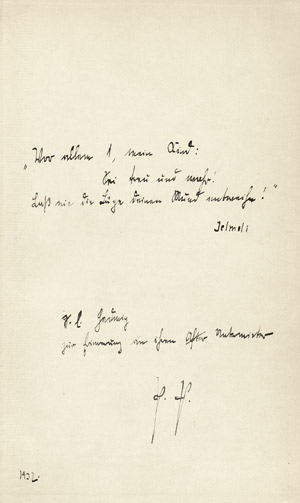 „Vor allem 1, mein Kind:
Sei treu und wahr!
Laß nie die Lüge deinen Mund entweihn!“
Jelmoli
zur Erinnerung an ihren After Untermieter
1932.